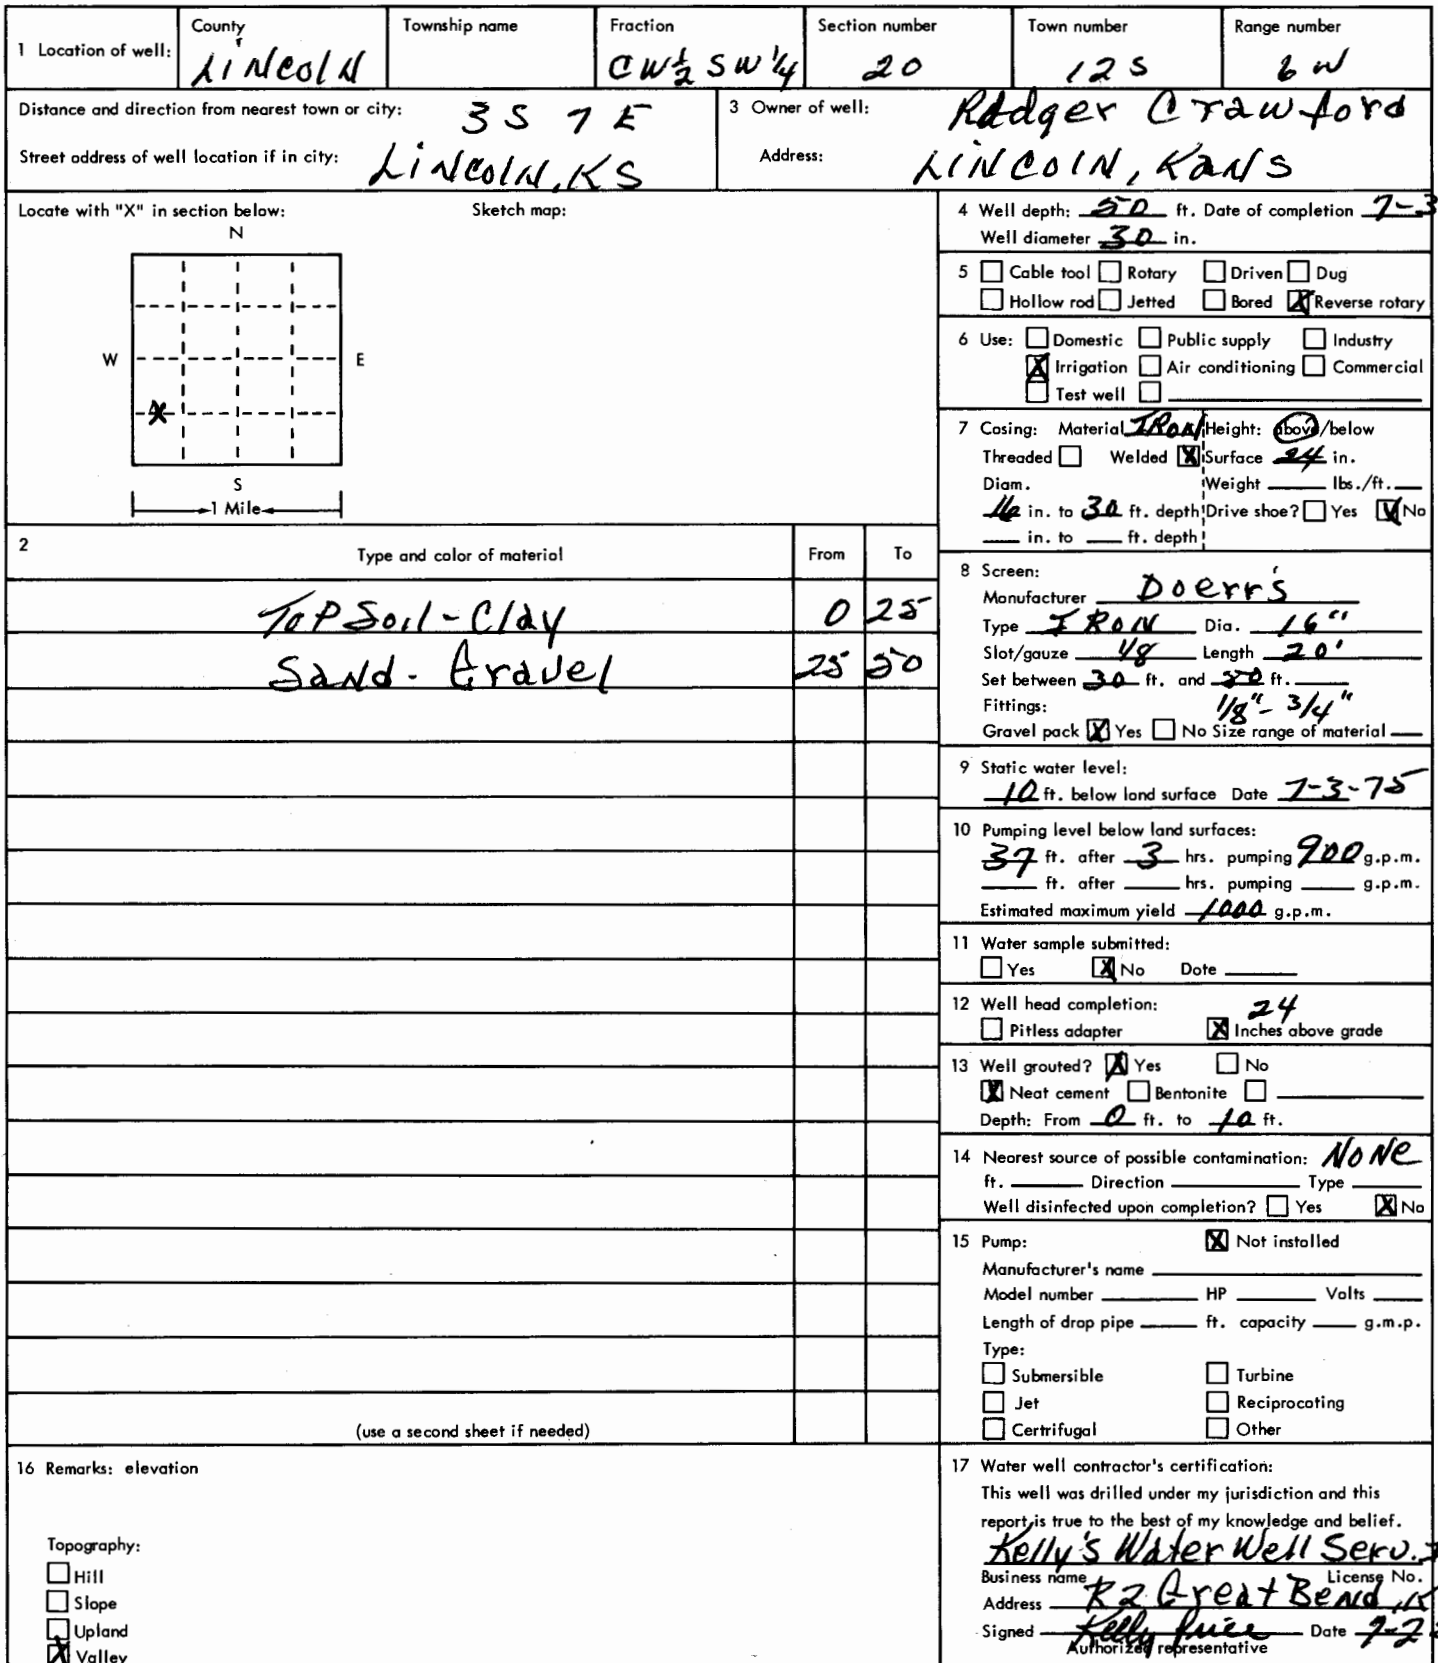 1 Location of well: County Township name Fraction Section number Town number Range number
LINCOLN CW½ SW¼ 20 12S 6W
Distance and direction from nearest town or city: 3 S 7 E
Street address of well location if in city: LINCOLN, KS
3 Owner of well: Rodger Crawford
Address: LINCOLN, KANS
Locate with "X" in section below: Sketch map:
N
W E
X
S
1 Mile
2 Type and color of material From To
Top Soil - Clay 0 25
Sand - Gravel 25 50
(use a second sheet if needed)
4 Well depth: 50 ft. Date of completion 7-3
Well diameter 30 in.
5 Cable tool Rotary Driven Dug
Hollow rod Jetted Bored X Reverse rotary
6 Use: Domestic Public supply Industry
X Irrigation Air conditioning Commercial
Test well
7 Casing: Material IRON Height: above/below
Threaded Welded X Surface 24 in.
Diam. Weight lbs./ft.
16 in. to 30 ft. depth Drive shoe? Yes X No
in. to ft. depth
8 Screen:
Manufacturer Doerr's
Type IRON Dia. 16"
Slot/gauze 1/8 Length 20'
Set between 30 ft. and 50 ft.
Fittings: 1/8" - 3/4"
Gravel pack X Yes No Size range of material
9 Static water level:
10 ft. below land surface Date 7-3-75
10 Pumping level below land surfaces:
37 ft. after 3 hrs. pumping 900 g.p.m.
ft. after hrs. pumping g.p.m.
Estimated maximum yield 1000 g.p.m.
11 Water sample submitted:
Yes X No Date
12 Well head completion: 24
Pitless adapter X Inches above grade
13 Well grouted? X Yes No
X Neat cement Bentonite
Depth: From 0 ft. to 10 ft.
14 Nearest source of possible contamination: NONE
ft. Direction Type
Well disinfected upon completion? Yes X No
15 Pump: X Not installed
Manufacturer's name
Model number HP Volts
Length of drop pipe ft. capacity g.m.p.
Type:
Submersible Turbine
Jet Reciprocating
Certrifugal Other
16 Remarks: elevation
Topography:
Hill
Slope
Upland
X Valley
17 Water well contractor's certification:
This well was drilled under my jurisdiction and this
report is true to the best of my knowledge and belief.
Kelly's Water Well Serv.
Business name License No.
Address R2 Great Bend, K
Signed Kelly Price Date 7-2
Authorized representative